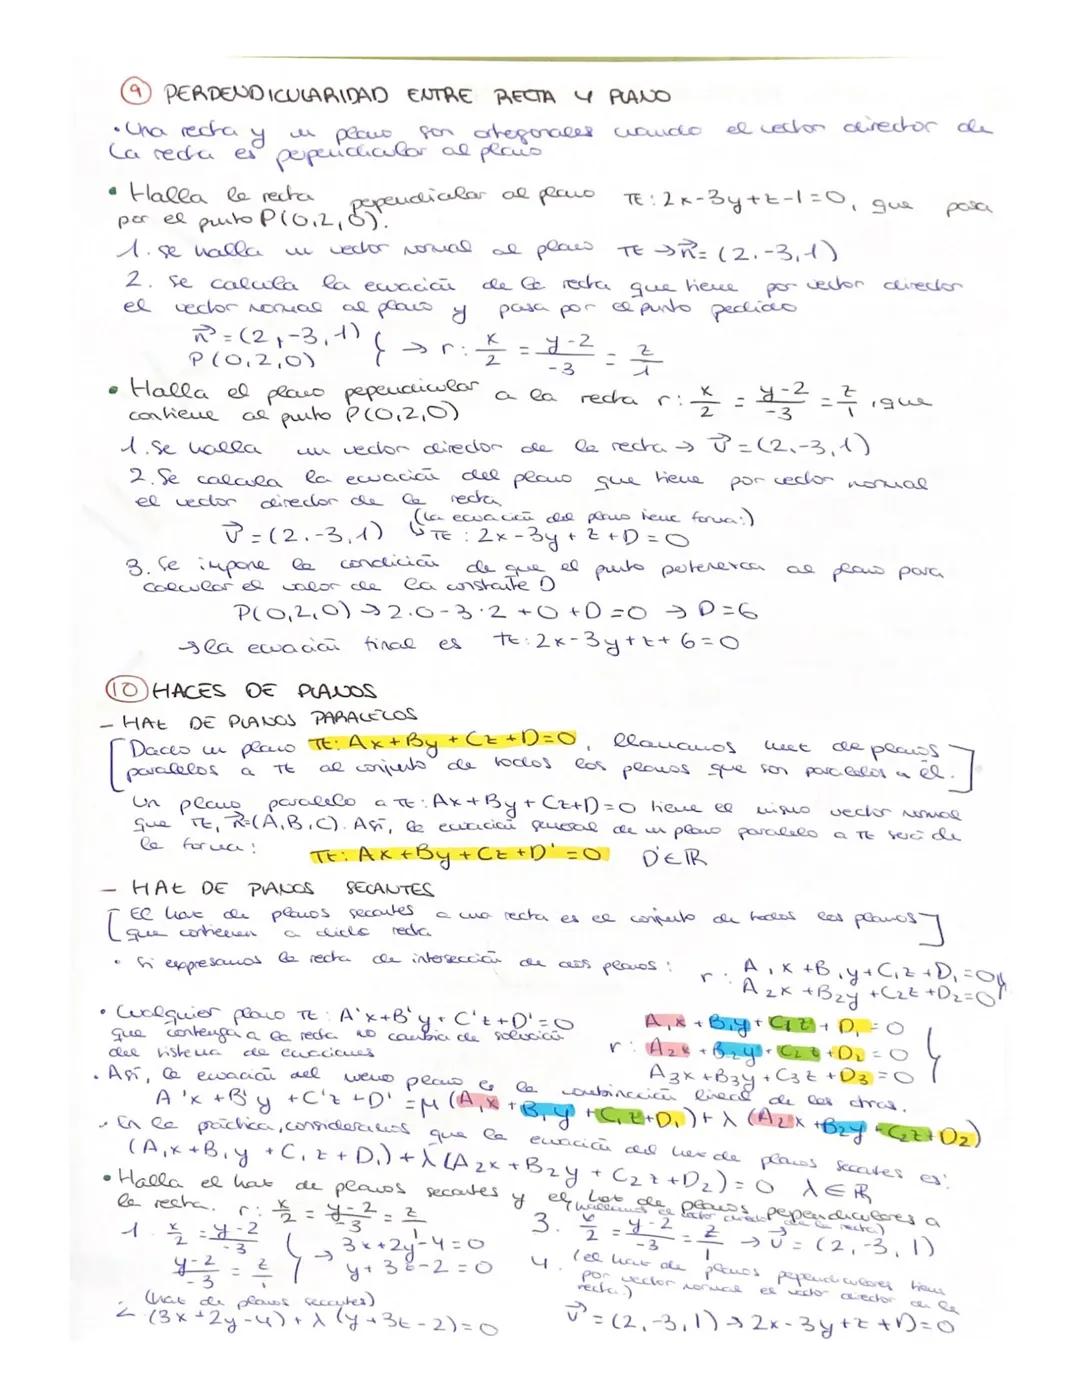 9 PERPENDICULARIDAD ENTRE RECTA Y PLANO
• Una recta y un plano son ortogonales cuando el vector director de
la recta es perpendicular al plano
• Halla la recta perpendicular al plano π: 2x-3y+z-1=0, que pasa
por el punto P(0,2,0).
1. se halla un vector normal al plano π → n⃗ = (2,-3,1)
2. Se calcula la ecuación de la recta que tiene por vector director
el vector normal al plano y pasa por el punto pedido
n⃗ = (2,-3,1)
P(0,2,0) } → r: x/2 = y-2/-3 = z/1
• Halla el plano perpendicular a la recta r: x/2 = y-2/-3 = z/1, que
contiene al punto P(0,2,0)
1. Se halla un vector director de la recta → v⃗ = (2,-3,1)
2. Se calcula la ecuación del plano que tiene por vector normal
el vector director de la recta
(la ecuación del plano tiene forma:)
v⃗ = (2,-3,1) ↳ π: 2x-3y+z+D=0
3. Se impone la condición de que el punto pertenezca al plano para
calcular el valor de la constante D
P(0,2,0) → 2·0-3·2+0+D=0 → D=6
→ la ecuación final es π: 2x-3y+z+6=0
10 HACES DE PLANOS
- HAZ DE PLANOS PARALELOS
[Dado un plano π: Ax+By+Cz+D=0, llamamos haz de planos
paralelos a π al conjunto de todos los planos que son paralelos a él.]
Un plano paralelo a π: Ax+By+Cz+D=0 tiene el mismo vector normal
que π, n⃗=(A,B,C). Así, la ecuación general de un plano paralelo a π será de
la forma:
π: Ax+By+Cz+D'=0 D'∈ℝ
- HAZ DE PLANOS SECANTES
[El haz de planos secantes a una recta es el conjunto de todos los planos
que contienen a dicha recta]
• Si expresamos la recta de intersección de dos planos: r: A₁x+B₁y+C₁z+D₁=0
A₂x+B₂y+C₂z+D₂=0 }
• Cualquier plano π: A'x+B'y+C'z+D'=0
que contenga a la recta no cambia de solución
del sistema de ecuaciones
A₁x+B₁y+C₁z+D₁=0
r: A₂x+B₂y+C₂z+D₂=0
A₃x+B₃y+C₃z+D₃=0 }
• Así, la ecuación del nuevo plano es la combinación lineal de las otras.
A'x+B'y+C'z+D' = μ(A₁x+B₁y+C₁z+D₁)+λ(A₂x+B₂y+C₂z+D₂)
• En la práctica, consideramos que la ecuación del haz de planos secantes es:
(A₁x+B₁y+C₁z+D₁)+λ(A₂x+B₂y+C₂z+D₂)=0 λ∈ℝ
• Halla el haz de planos secantes y el haz de planos perpendiculares a
la recta. r: x/2 = y-2/-3 = z/1
1. x/2 = y-2/-3
y-2/-3 = z/1 } → 3x+2y-4=0
y+3z-2=0
(haz de planos secantes)
2. (3x+2y-4)+λ(y+3z-2)=0
(hallamos el vector director de la recta)
3. x/2 = y-2/-3 = z/1 → v⃗ = (2,-3,1)
4. (el haz de planos perpendiculares tiene
por vector normal el vector director de la
recta.)
v⃗ = (2,-3,1) → 2x-3y+z+D=0